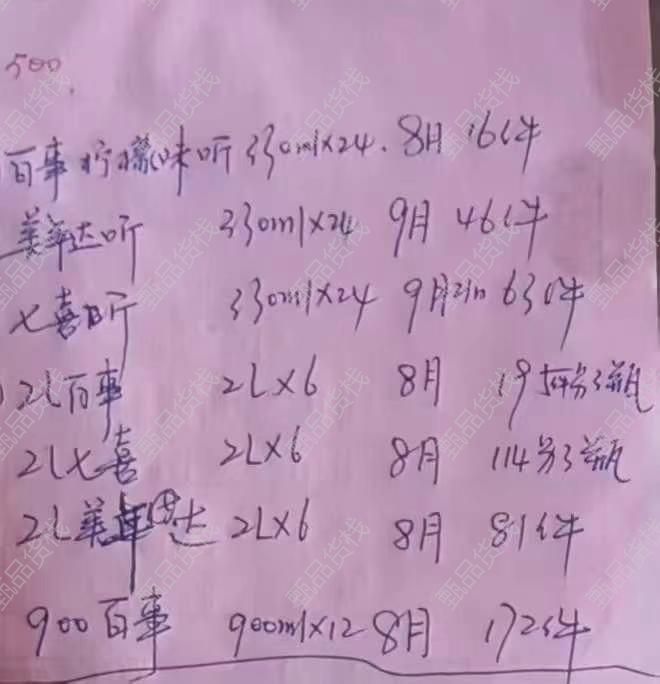 500
百事柠檬味听 330ml×24. 8月 16件
美年达听 330ml×24 9月 46件
七喜听 330ml×24 9月21日 63件
2L百事 2L×6 8月 19件另3瓶
2L七喜 2L×6 8月 114另3瓶
2L美年达 2L×6 8月 81件
900百事 900ml×12 8月 172件
甄品货栈